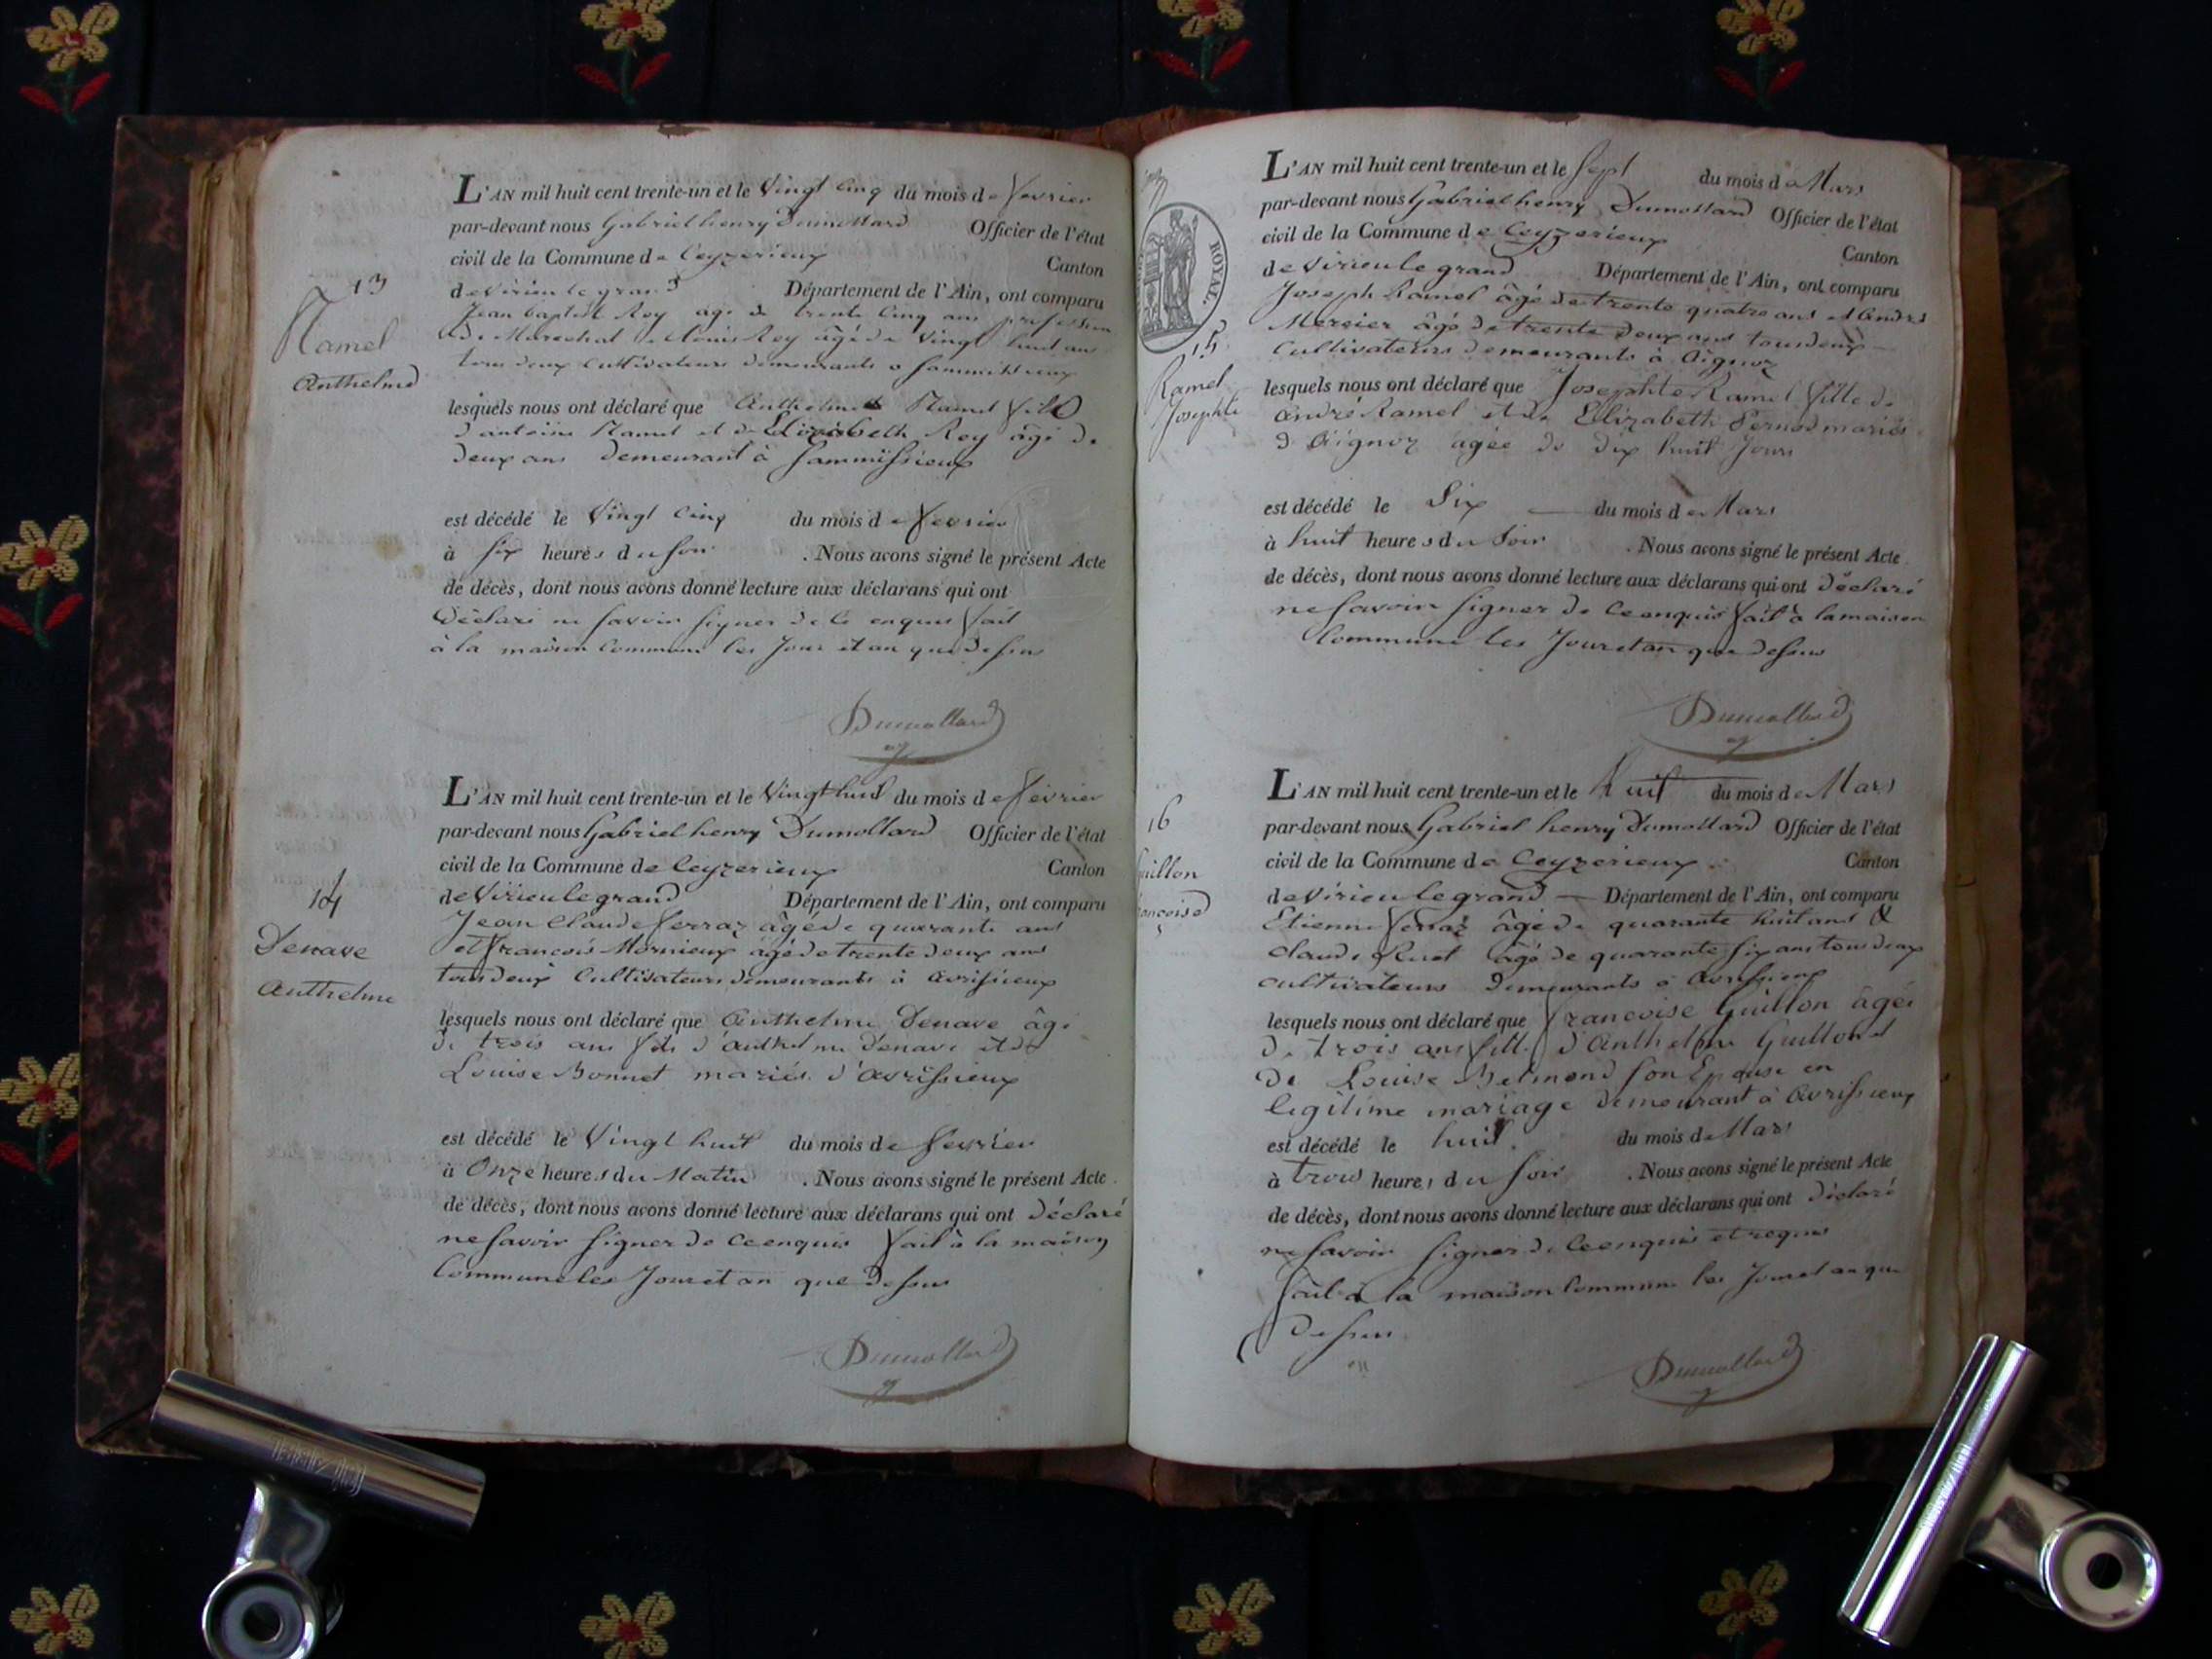 13
Ramel
Anthelme
L'AN mil huit cent trente-un et le Vingt Cinq du mois de fevrier
par-devant nous Gabriel henry Dumollard Officier de l'état
civil de la Commune de Ceyzerieux Canton
de Virieu le grand Département de l'Ain, ont comparu
Jean baptiste Rey âgé de trente Cinq ans profession
de Marechal Rey âgé de Vingt huit ans
tous deux Cultivateurs demeurants a Sammissieux
lesquels nous ont déclaré que Anthelme Ramel fils
d'antoine Ramel et de Elizabeth Rey âgé de
deux ans demeurant à Sammissieux
est décédé le Vingt Cinq du mois de fevrier
à six heures du soir . Nous avons signé le présent Acte
de décès, dont nous avons donné lecture aux déclarans qui ont
Déclaré ne savoir signer de ce enquis fait
à la maison Commune les Jour et an que dessus
Dumollard
14
Denave
Anthelme
L'AN mil huit cent trente-un et le Vingt huit du mois de février
par-devant nous Gabriel henry Dumollard Officier de l'état
civil de la Commune de Ceyzerieux Canton
de Virieu le grand Département de l'Ain, ont comparu
Jean Claude ferraz âgé de quarante ans
et françois Mornieux âgé de trente deux ans
tous deux Cultivateurs demeurants à avrissieux
lesquels nous ont déclaré que Anthelme Denave âgé
de trois ans fils d'anthelme Denave et de
Louise Bonnet mariés d'avrissieux
est décédé le Vingt huit du mois de fevrier
à Onze heures du Matin . Nous avons signé le présent Acte
de décès, dont nous avons donné lecture aux déclarans qui ont déclaré
ne savoir signer de ce enquis fait à la maison
Commune les Jour et an que dessus
Dumollard
ROYAL.
15
Ramel
Josephte
L'AN mil huit cent trente-un et le Sept du mois de Mars
par-devant nous Gabriel henry Dumollard Officier de l'état
civil de la Commune de Ceyzerieux Canton
de Virieu le grand Département de l'Ain, ont comparu
Joseph Ramel âgé de trente quatre ans et André
Mercier âgé de trente deux ans tous deux
Cultivateurs demeurants à Aignoz
lesquels nous ont déclaré que Josephte Ramel fille de
André Ramel et de Elizabeth Pernod mariés
d'Aignoz agée de dix huit Jours
est décédé le Six du mois de Mars
à huit heures du Soir . Nous avons signé le présent Acte
de décès, dont nous avons donné lecture aux déclarans qui ont déclaré
ne savoir signer de ce enquis fait à la maison
Commune les Jour et an que dessus
Dumollard
16
uillon
ancoise
L'AN mil huit cent trente-un et le huit du mois de Mars
par-devant nous Gabriel henry Dumollard Officier de l'état
civil de la Commune de Ceyzerieux Canton
de Virieu le grand Département de l'Ain, ont comparu
Etienne ferraz âgé de quarante huit ans &
claude Ruet âgé de quarante six ans tous deux
cultivateurs demeurants a avrissieux
lesquels nous ont déclaré que francoise Guillon âgée
de trois ans fille d'Anthelme Guillon et
de Louise Belmond son Epouse en
legitime mariage demeurant à avrissieux
est décédé le huit du mois de Mars
à trois heures du soir . Nous avons signé le présent Acte
de décès, dont nous avons donné lecture aux déclarans qui ont déclaré
ne savoir signer de ce enquis et requis
fait à la maison Commune les Jour et an que
dessus
Dumollard